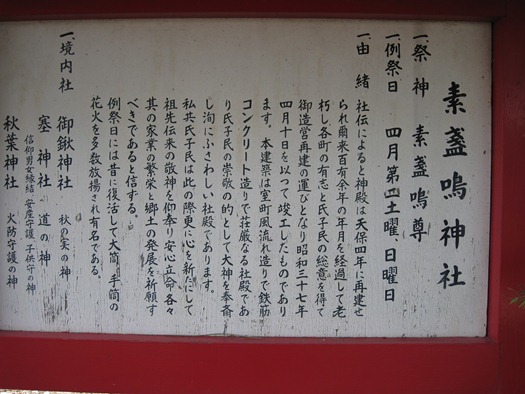 素盞嗚神社
一、祭神　素盞嗚尊
一、例祭日　四月第二土曜、日曜日
一、由緒　社伝によると神殿は天保四年に再建せ
られ爾来百有余年の年月を経過して老
朽し各町の有志と氏子民の総意を得て
御造営再建の運びとなり昭和三十七年
四月十日を以つて竣工したものであり
ます。本建築は室町風流れ造りで鉄筋
コンクリート造りで荘厳なる社殿であ
り氏子民の崇敬の的として大神を奉斎
し洵にふさわしい社殿であります。
私共氏子民は此の際更に心を新たにして
祖先伝来の敬神を仰奉り安心立命各々
其の家業の繁栄と郷土の発展を祈願す
べきであると信ずる。
例祭日には昔に復活して大筒、手筒の
花火を多数放揚され有名である。
一、境内社　御鍬神社　秋の実の神
塞神社　道の神
信仰男女縁結 安産守護 子供守の神
秋葉神社　火防守護の神